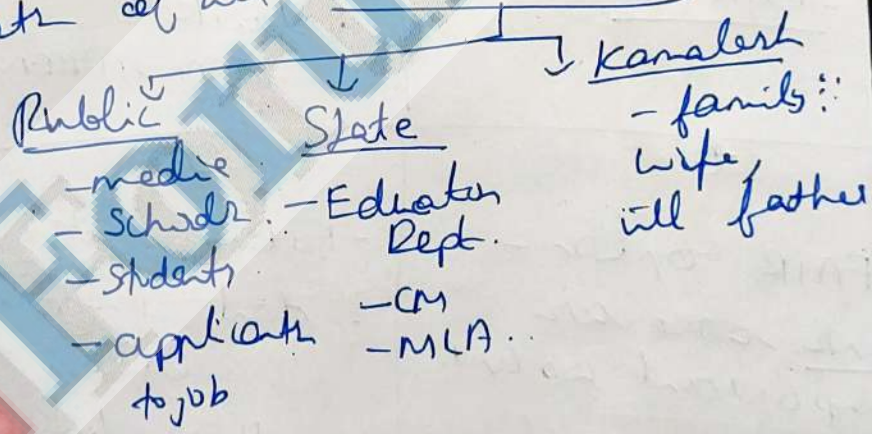 Public
- media
- Schools.
- students
- applicants
to job
State
- Education
Dept.
- CM
- MLA..
Kamalesh
- family:
wife,
ill father
Forum